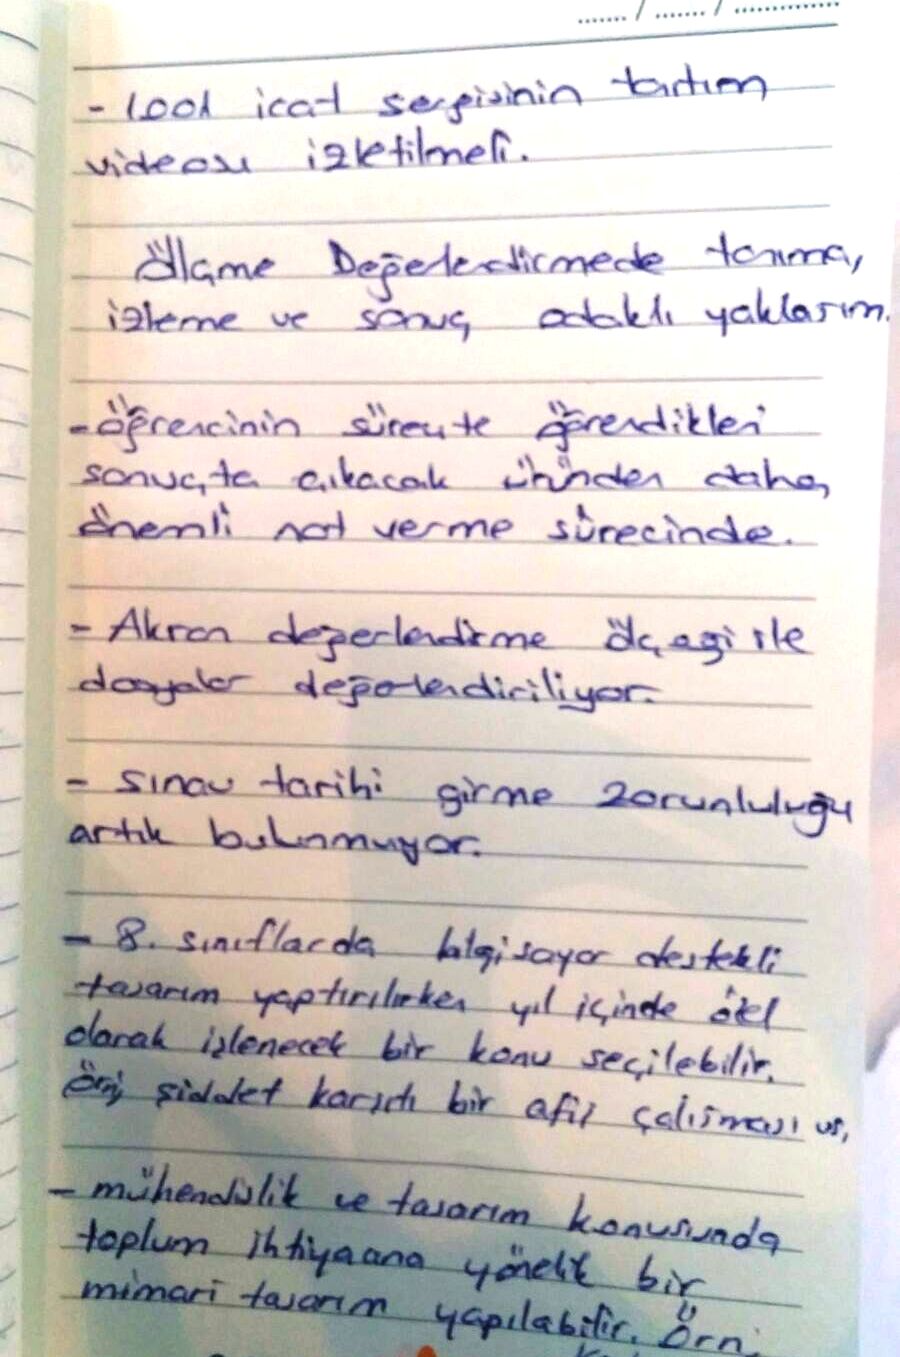 - 1001 icat sergisinin tanıtım
videosu izletilmeli.
Ölçme Değerlendirmede tanıma,
izleme ve sonuç odaklı yaklaşım.
- öğrencinin süreçte öğrendikleri
sonuçta çıkacak üründen daha
önemli not verme sürecinde.
- Akran değerlendirme ölçeği ile
dosyalar değerlendiriliyor.
- Sınav tarihi girme zorunluluğu
artık bulunmuyor.
- 8. sınıflarda bilgisayar destekli
tasarım yaptırılırken yıl içinde özel
olarak izlenecek bir konu seçilebilir.
Örn; şiddet karşıtı bir afiş çalışması vs,
- mühendislik ve tasarım konusunda
toplum ihtiyacına yönelik bir
mimari tasarım yapılabilir. Örn;